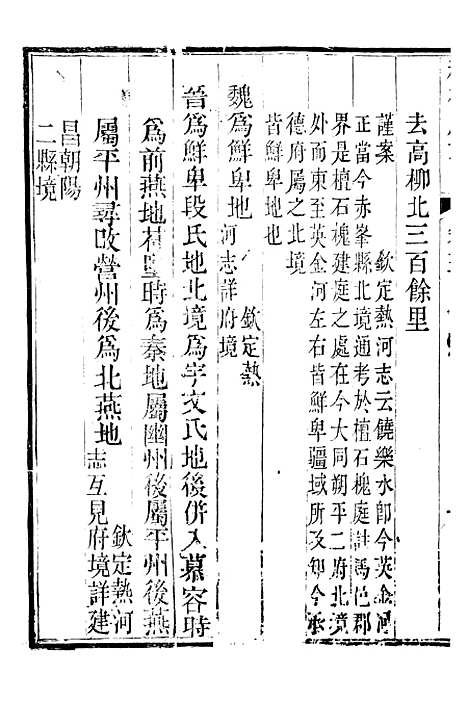 去高柳北三百餘里
謹案　欽定熱河志云饒樂水卽今英金河
正當今赤峯縣北境通考於檀石槐庭註馬邑郡
界是檀石槐建庭之處在今大同朔平二府北境
外而東至英金河左右皆鮮卑疆域所及卽今承
德府屬之北境
皆鮮卑地也
魏爲鮮卑地欽定熱
河志詳府境
晉爲鮮卑段氏地北境爲宇文氏地後併入慕容時
爲前燕地苻堅時爲秦地屬幽州後屬平州後燕
屬平州尋改營州後爲北燕地欽定熱河
志互見府境詳建
昌朝陽
二縣境